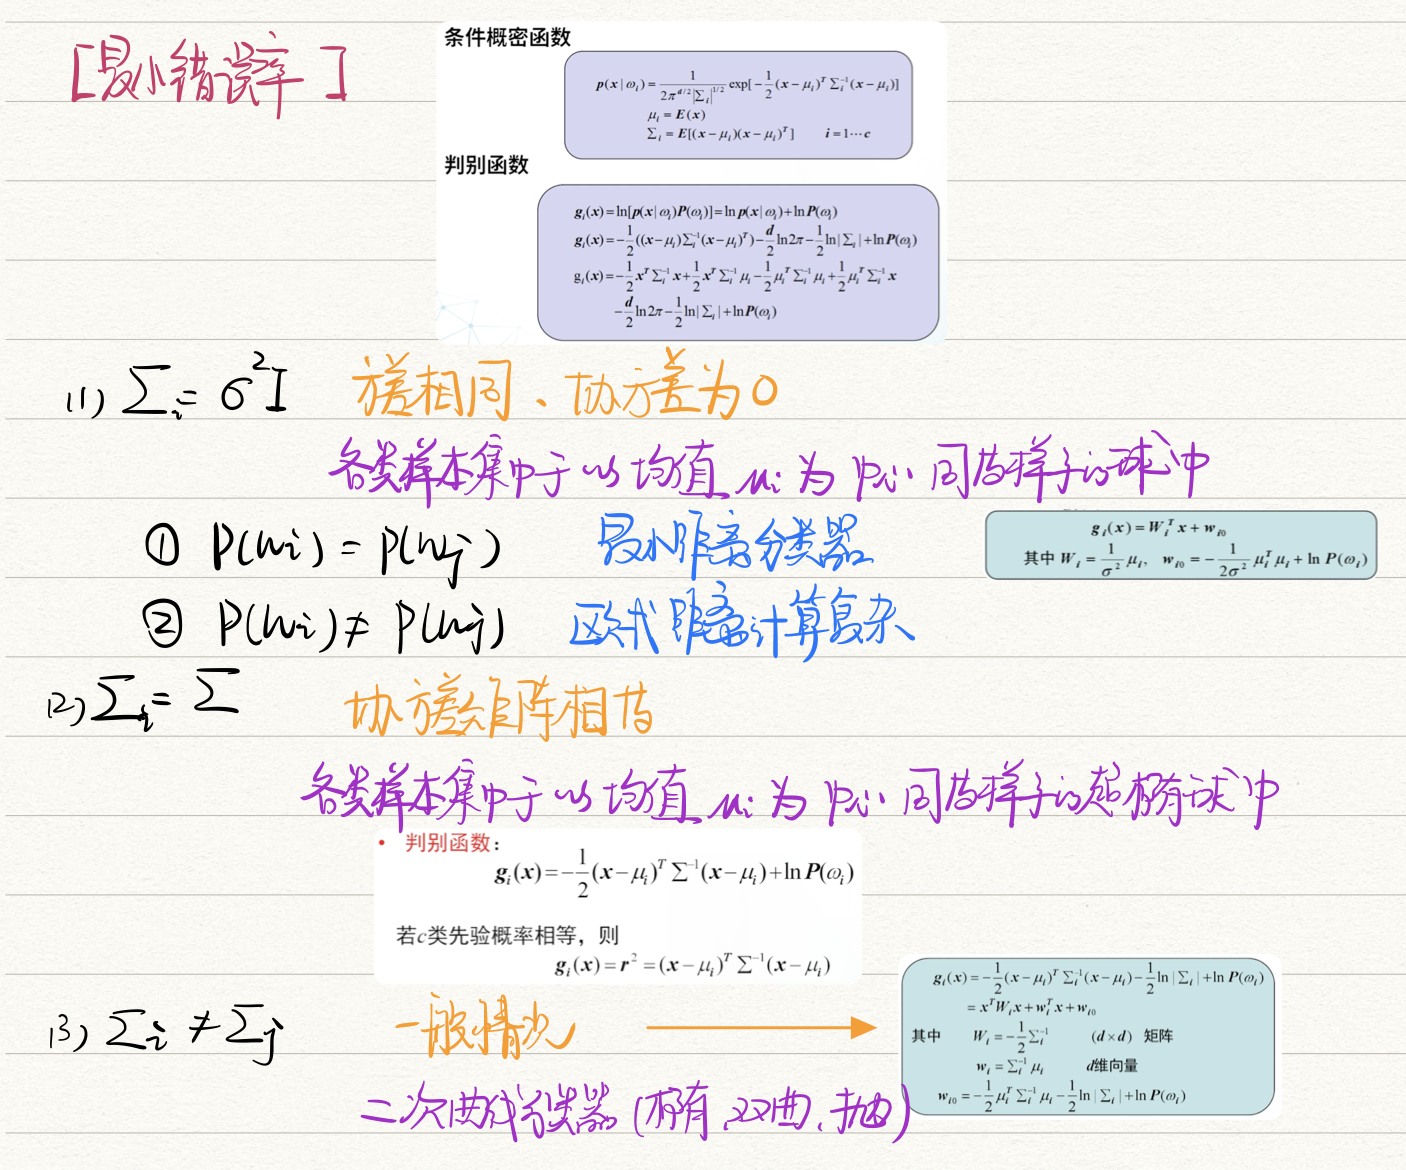 [最小错误率]
条件概密函数
p(x|ω_i) = 1/(2π^{d/2}|∑_i|^{1/2}) exp[-1/2(x-μ_i)^T ∑_i^{-1}(x-μ_i)]
μ_i = E(x)
∑_i = E[(x-μ_i)(x-μ_i)^T] i=1⋯c
判别函数
g_i(x)=ln[p(x|ω_i)P(ω_i)]=ln p(x|ω_i)+ln P(ω_i)
g_i(x)=-1/2((x-μ_i)∑_i^{-1}(x-μ_i)^T)-d/2 ln2π-1/2 ln|∑_i|+ln P(ω_i)
g_i(x)=-1/2 x^T∑_i^{-1}x+1/2 x^T∑_i^{-1}μ_i-1/2 μ_i^T∑_i^{-1}μ_i+1/2 μ_i^T∑_i^{-1}x
-d/2 ln2π-1/2 ln|∑_i|+ln P(ω_i)
(1) ∑_i = σ²I 方差相同、协方差为0
各类样本集中于以均值μi为中心同为样子的球中
① P(wi) = P(wj) 最小距离分类器
g_i(x)=W_i^T x+w_{i0}
其中 W_i=1/σ² μ_i, w_{i0}=-1/(2σ²) μ_i^T μ_i+ln P(ω_i)
② P(wi) ≠ P(wj) 欧式距离计算复杂
(2) ∑_i = ∑ 协方差矩阵相等
各类样本集中于以均值μi为中心同为样子的超椭球中
• 判别函数:
g_i(x)=-1/2(x-μ_i)^T ∑^{-1}(x-μ_i)+ln P(ω_i)
若c类先验概率相等，则
g_i(x)=r²=(x-μ_i)^T ∑^{-1}(x-μ_i)
(3) ∑i ≠ ∑j 一般情况
g_i(x)=-1/2(x-μ_i)^T ∑_i^{-1}(x-μ_i)-1/2 ln|∑_i|+ln P(ω_i)
=x^T W_i x+w_i^T x+w_{i0}
其中 W_i=-1/2 ∑_i^{-1} (d×d) 矩阵
w_i=∑_i^{-1} μ_i d维向量
w_{i0}=-1/2 μ_i^T ∑_i^{-1} μ_i-1/2 ln|∑_i|+ln P(ω_i)
二次曲线分类器(椭有,双曲,抛)